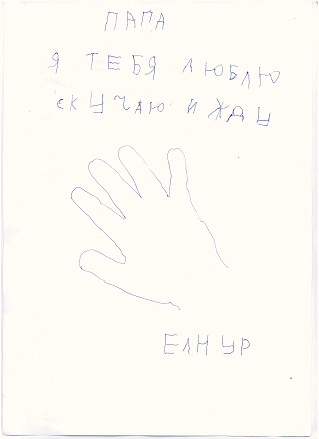 ПАПА
Я ТЕБЯ ЛЮБЛЮ
СКУЧАЮ И ЖДУ
ЕЛНУР